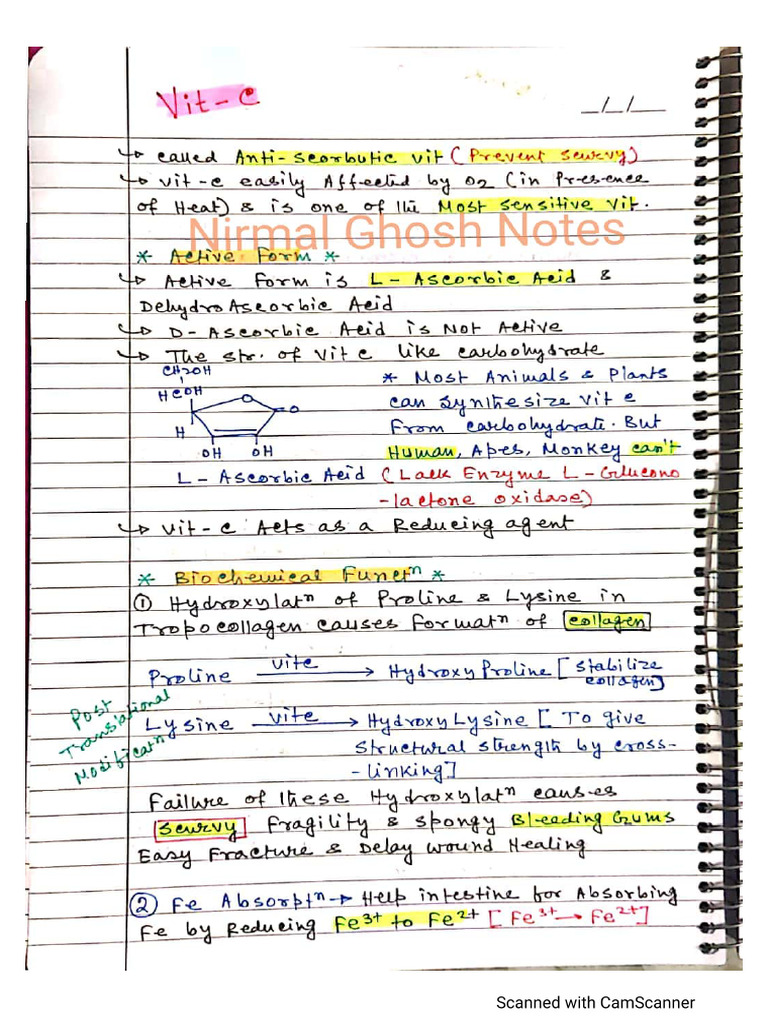 Vit-C
_/_/__
↳ called Anti-Scorbutic vit (Prevent Scurvy)
↳ vit-c easily Affected by O2 (in Presence
of Heat) & is one of the Most Sensitive Vit.
Nirmal Ghosh Notes
* Active Form *
↳ Active Form is L-Ascorbic Acid &
DehydroAscorbic Acid
↳ D-Ascorbic Acid is Not Active
↳ The str. of Vit C like carbohydrate
CH2OH
HCOH
O
O
H
OH OH
L-Ascorbic Acid
* Most Animals & Plants
can synthesize vit c
From carbohydrate. But
Human, Apes, Monkey can't
(Lack Enzyme L-Glucono
-lactone oxidase)
↳ Vit-C Acts as a Reducing agent
* Biochemical Functn *
① Hydroxylatn of Proline & Lysine in
Tropocollagen causes formatn of collagen
Proline vitc → HydroxyProline [Stabilize
collagen]
Post
Translational
Modificatn
Lysine vitc → HydroxyLysine [To give
Structural strength by cross-
-linking]
Failure of these Hydroxylatn causes
Scurvy Fragility & Spongy Bleeding Gums
Easy Fracture & Delay wound Healing
② Fe Absorptn → Help intestine for Absorbing
Fe by Reducing Fe3+ to Fe2+ [Fe3+ → Fe2+]
Scanned with CamScanner